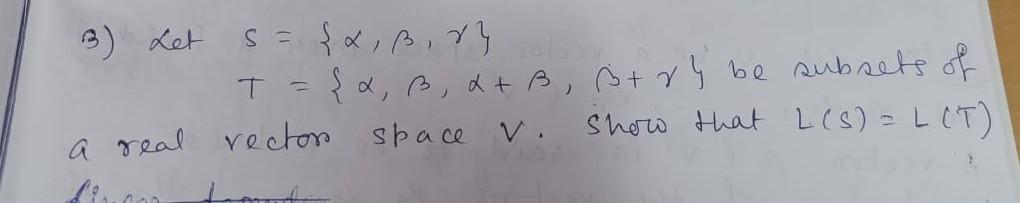 3) Let S = {α, β, γ}
T = {α, β, α + β, β + γ} be subsets of
a real vector space V. Show that L(S) = L(T)